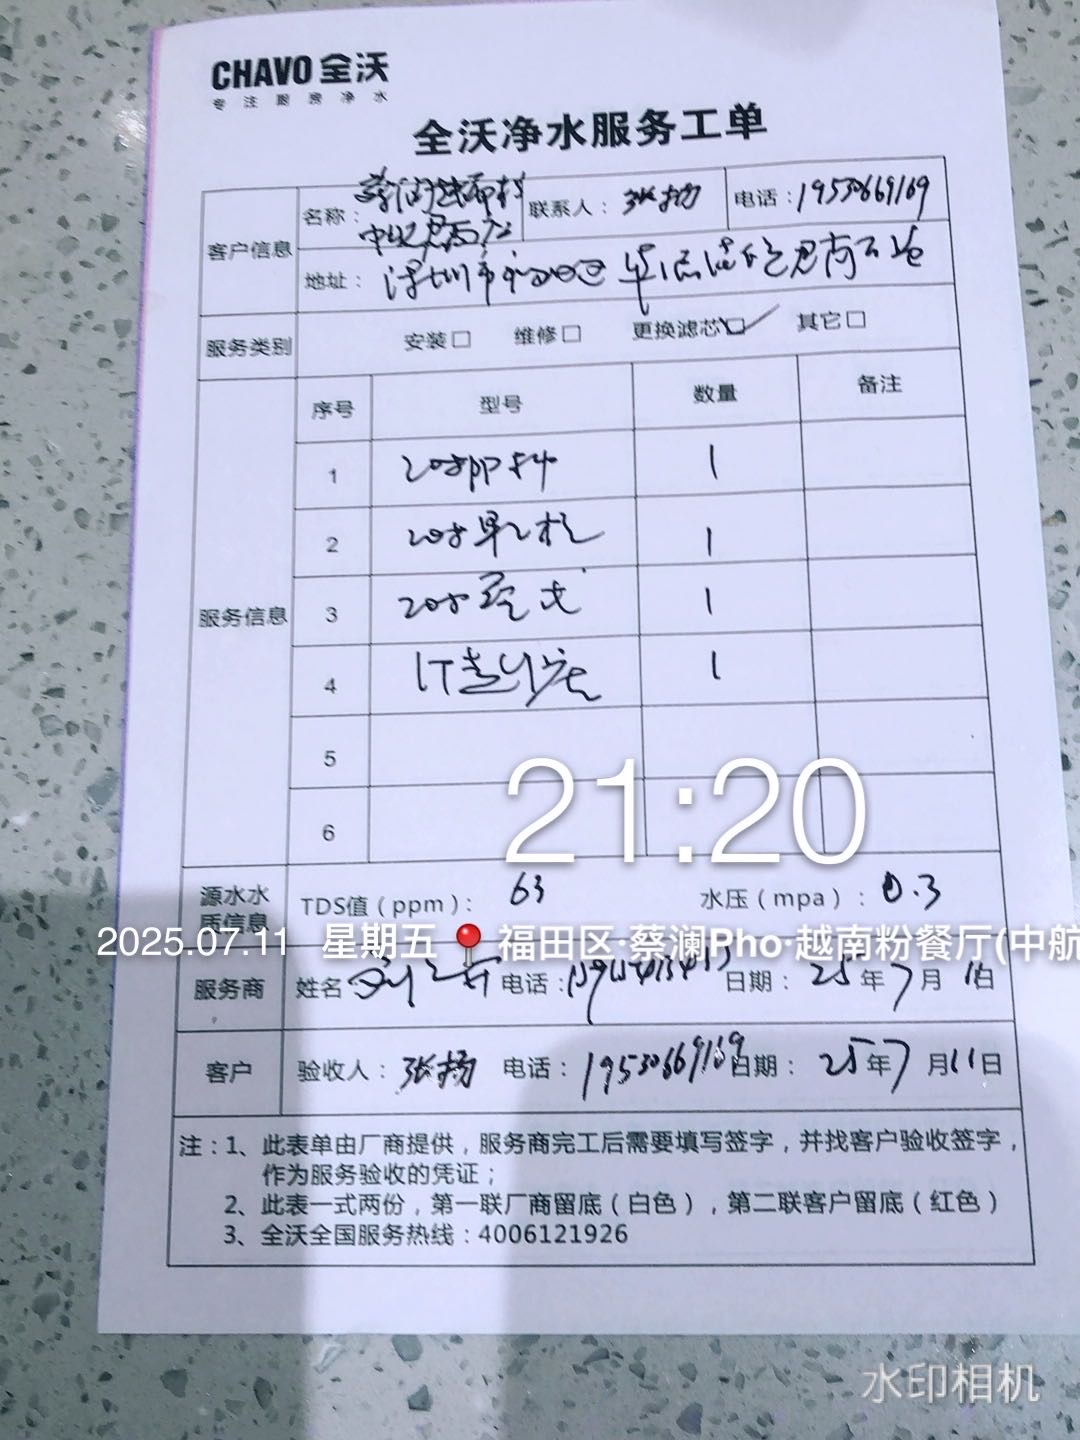 CHAVO 全沃
专注厨房净水
全沃净水服务工单
客户信息
名称：蔡澜越南粉
联系人：张扬
电话：19530669169
地址：深圳市
服务类别
安装□ 维修□ 更换滤芯☑ 其它□
服务信息
序号 型号 数量 备注
1 20寸PP 1
2 20寸 1
3 20寸 1
4 1T 1
5
6
21:20
源水水质信息
TDS值（ppm）： 63 水压（mpa）： 0.3
2025.07.11 星期五 福田区·蔡澜Pho·越南粉餐厅(中航
服务商 姓名 刘 电话： 日期： 25年7月11日
客户 验收人：张扬 电话：19530669169 日期： 25年7月11日
注：1、此表单由厂商提供，服务商完工后需要填写签字，并找客户验收签字，
作为服务验收的凭证；
2、此表一式两份，第一联厂商留底（白色），第二联客户留底（红色）
3、全沃全国服务热线：4006121926
水印相机